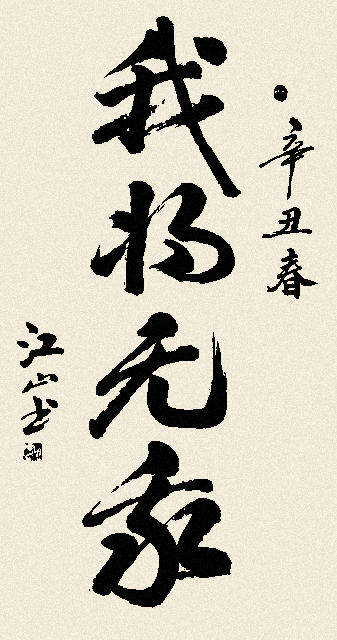 辛丑春
我将无我
江山书